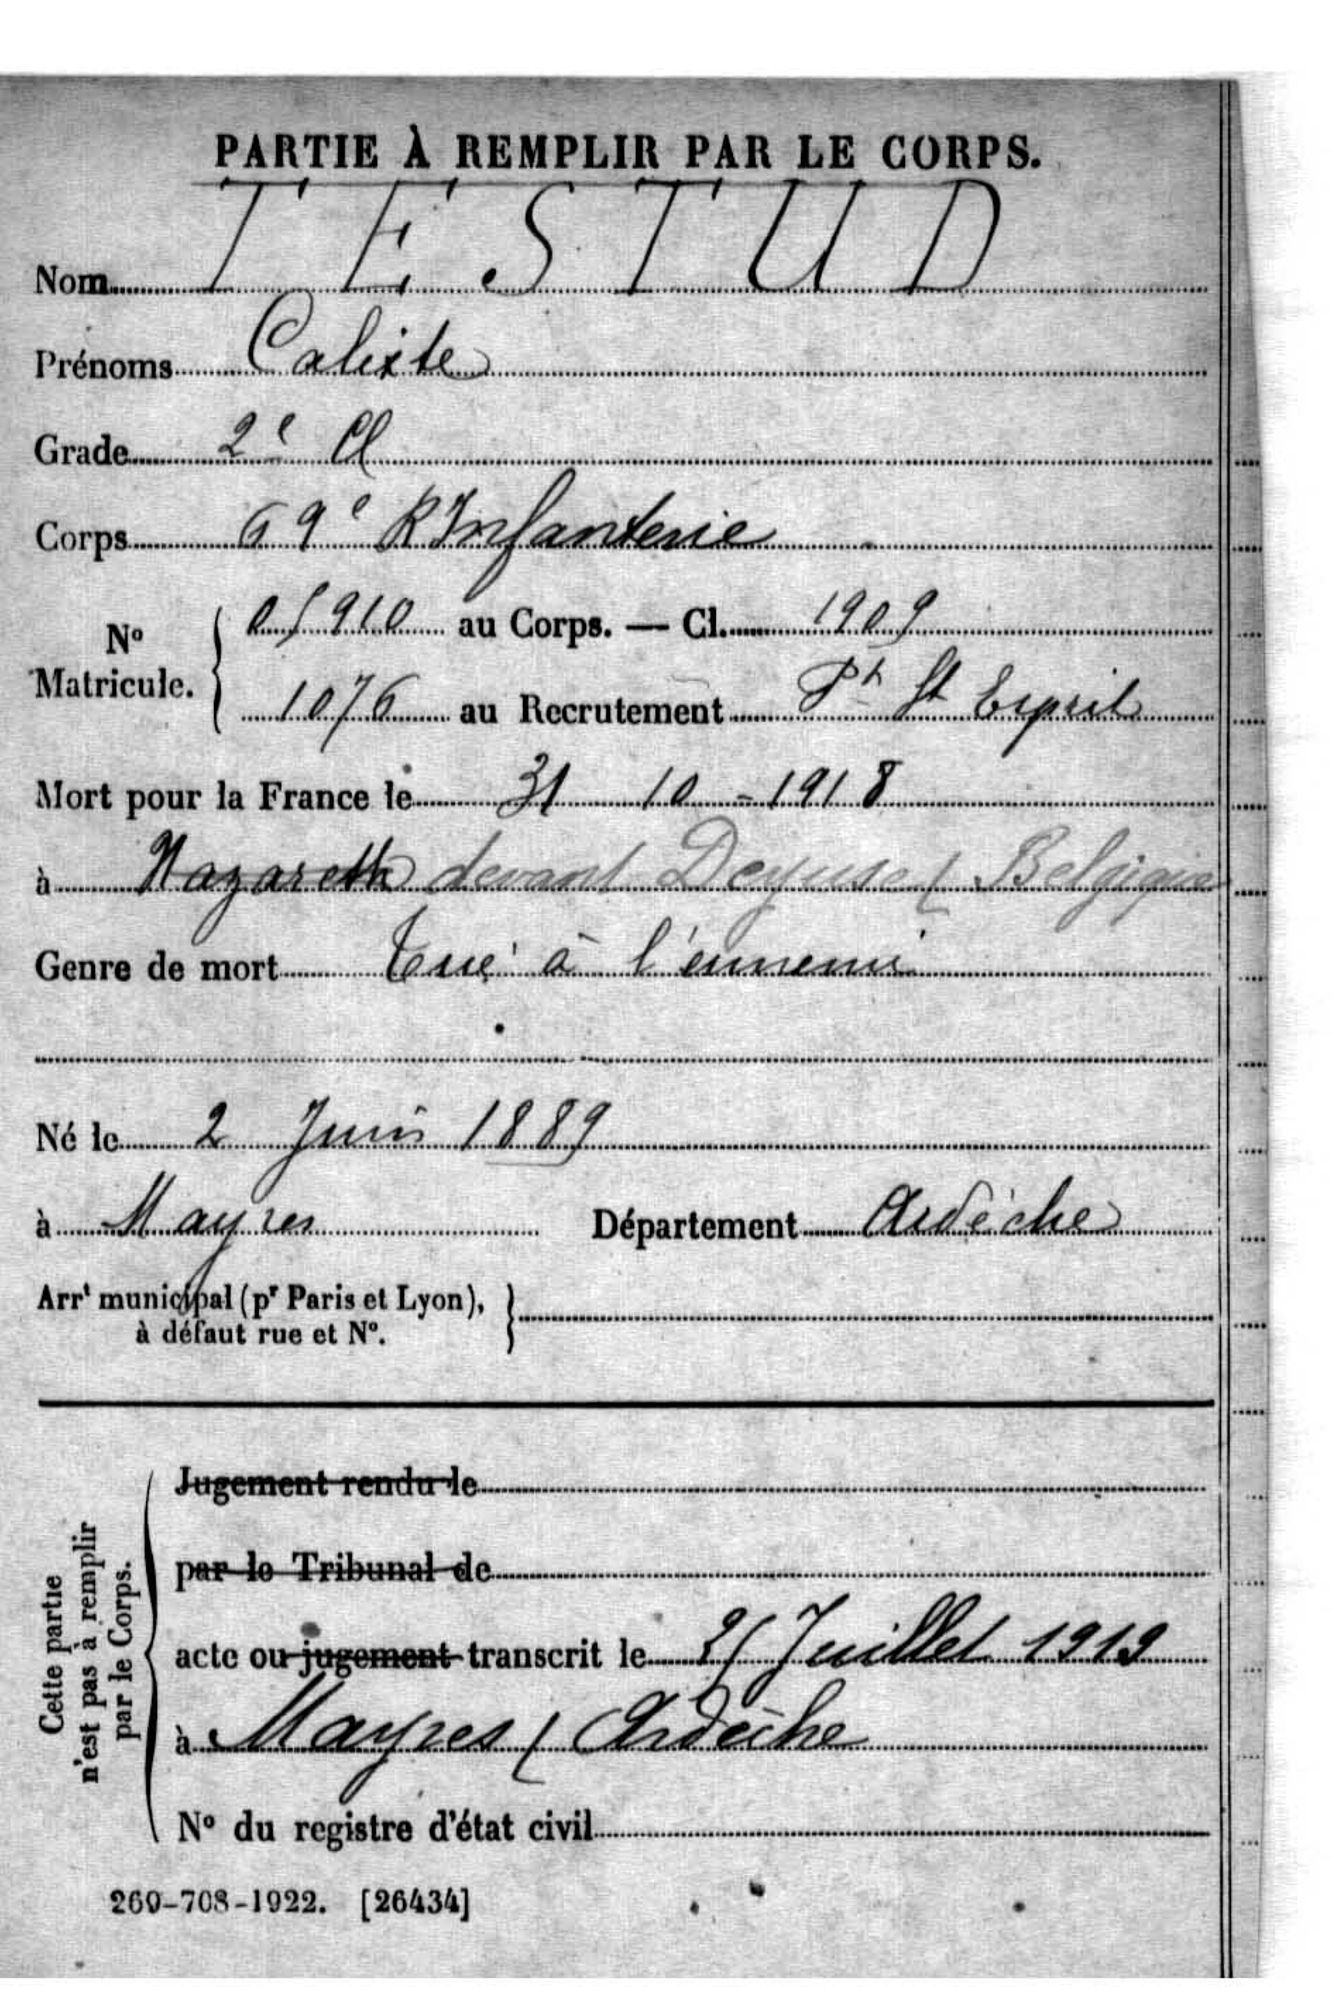 PARTIE À REMPLIR PAR LE CORPS.
Nom TESTUD
Prénoms Calixte
Grade 2e Cl
Corps 69e R Infanterie
No Matricule. 05910 au Corps. — Cl. 1909
1076 au Recrutement Pt St Esprit
Mort pour la France le 31 10 - 1918
à Nazareth devant Deynse (Belgique
Genre de mort Tué à l'ennemi
Né le 2 Juin 1889
à Mayres Département Ardèche
Arrt municipal (pr Paris et Lyon),
à défaut rue et No.
Cette partie
n'est pas à remplir
par le Corps.
Jugement rendu le
par le Tribunal de
acte ou jugement transcrit le Juillet 1919
à Mayres (Ardèche
No du registre d'état civil
269-708-1922. [26434]